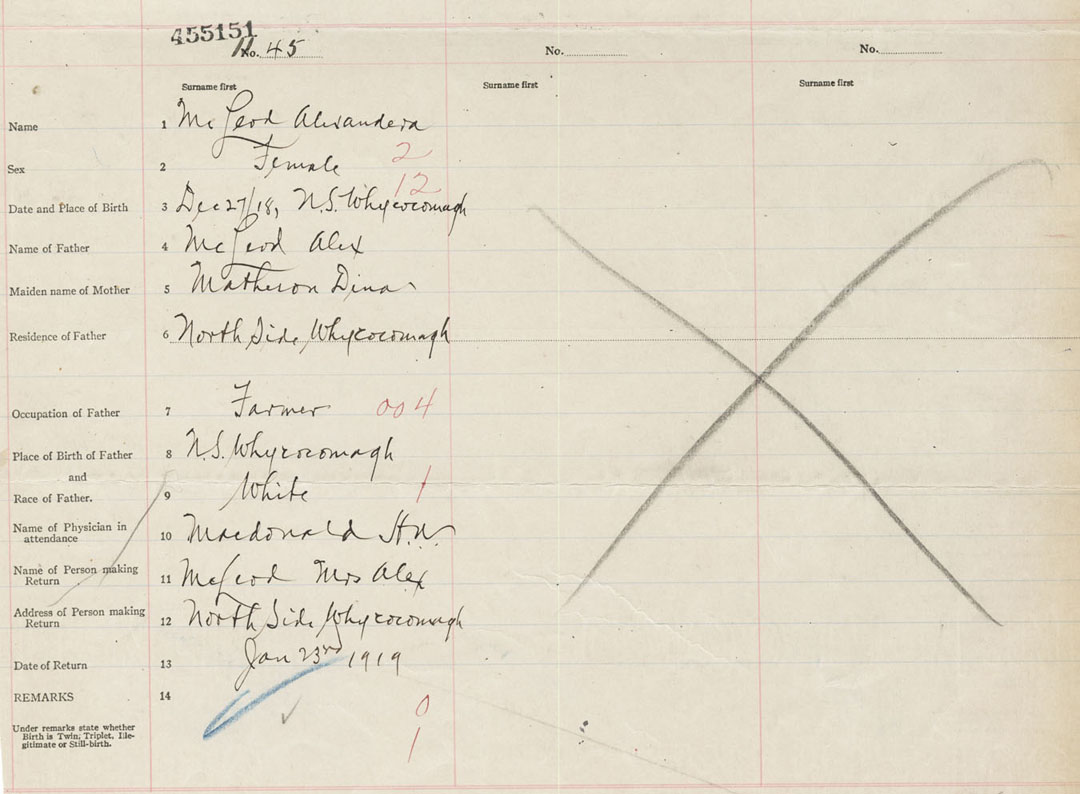 455151
No. 45 No. No.
Surname first Surname first Surname first
Name 1 McLeod Alexandera
Sex 2 Female 2
12
Date and Place of Birth 3 Dec 27/18, N.S. Whycocomagh
Name of Father 4 McLeod Alex
Maiden name of Mother 5 Matheson Dina
Residence of Father 6 North Side Whycocomagh
Occupation of Father 7 Farmer 004
Place of Birth of Father 8 N.S. Whycocomagh
and
Race of Father. 9 White 1
Name of Physician in
attendance 10 Macdonald H.N.
Name of Person making
Return 11 McLeod Mrs Alex
Address of Person making
Return 12 North Side Whycocomagh
Date of Return 13 Jan 23rd 1919
REMARKS 14
0
Under remarks state whether
Birth is Twin, Triplet, Ille-
gitimate or Still-birth.
1